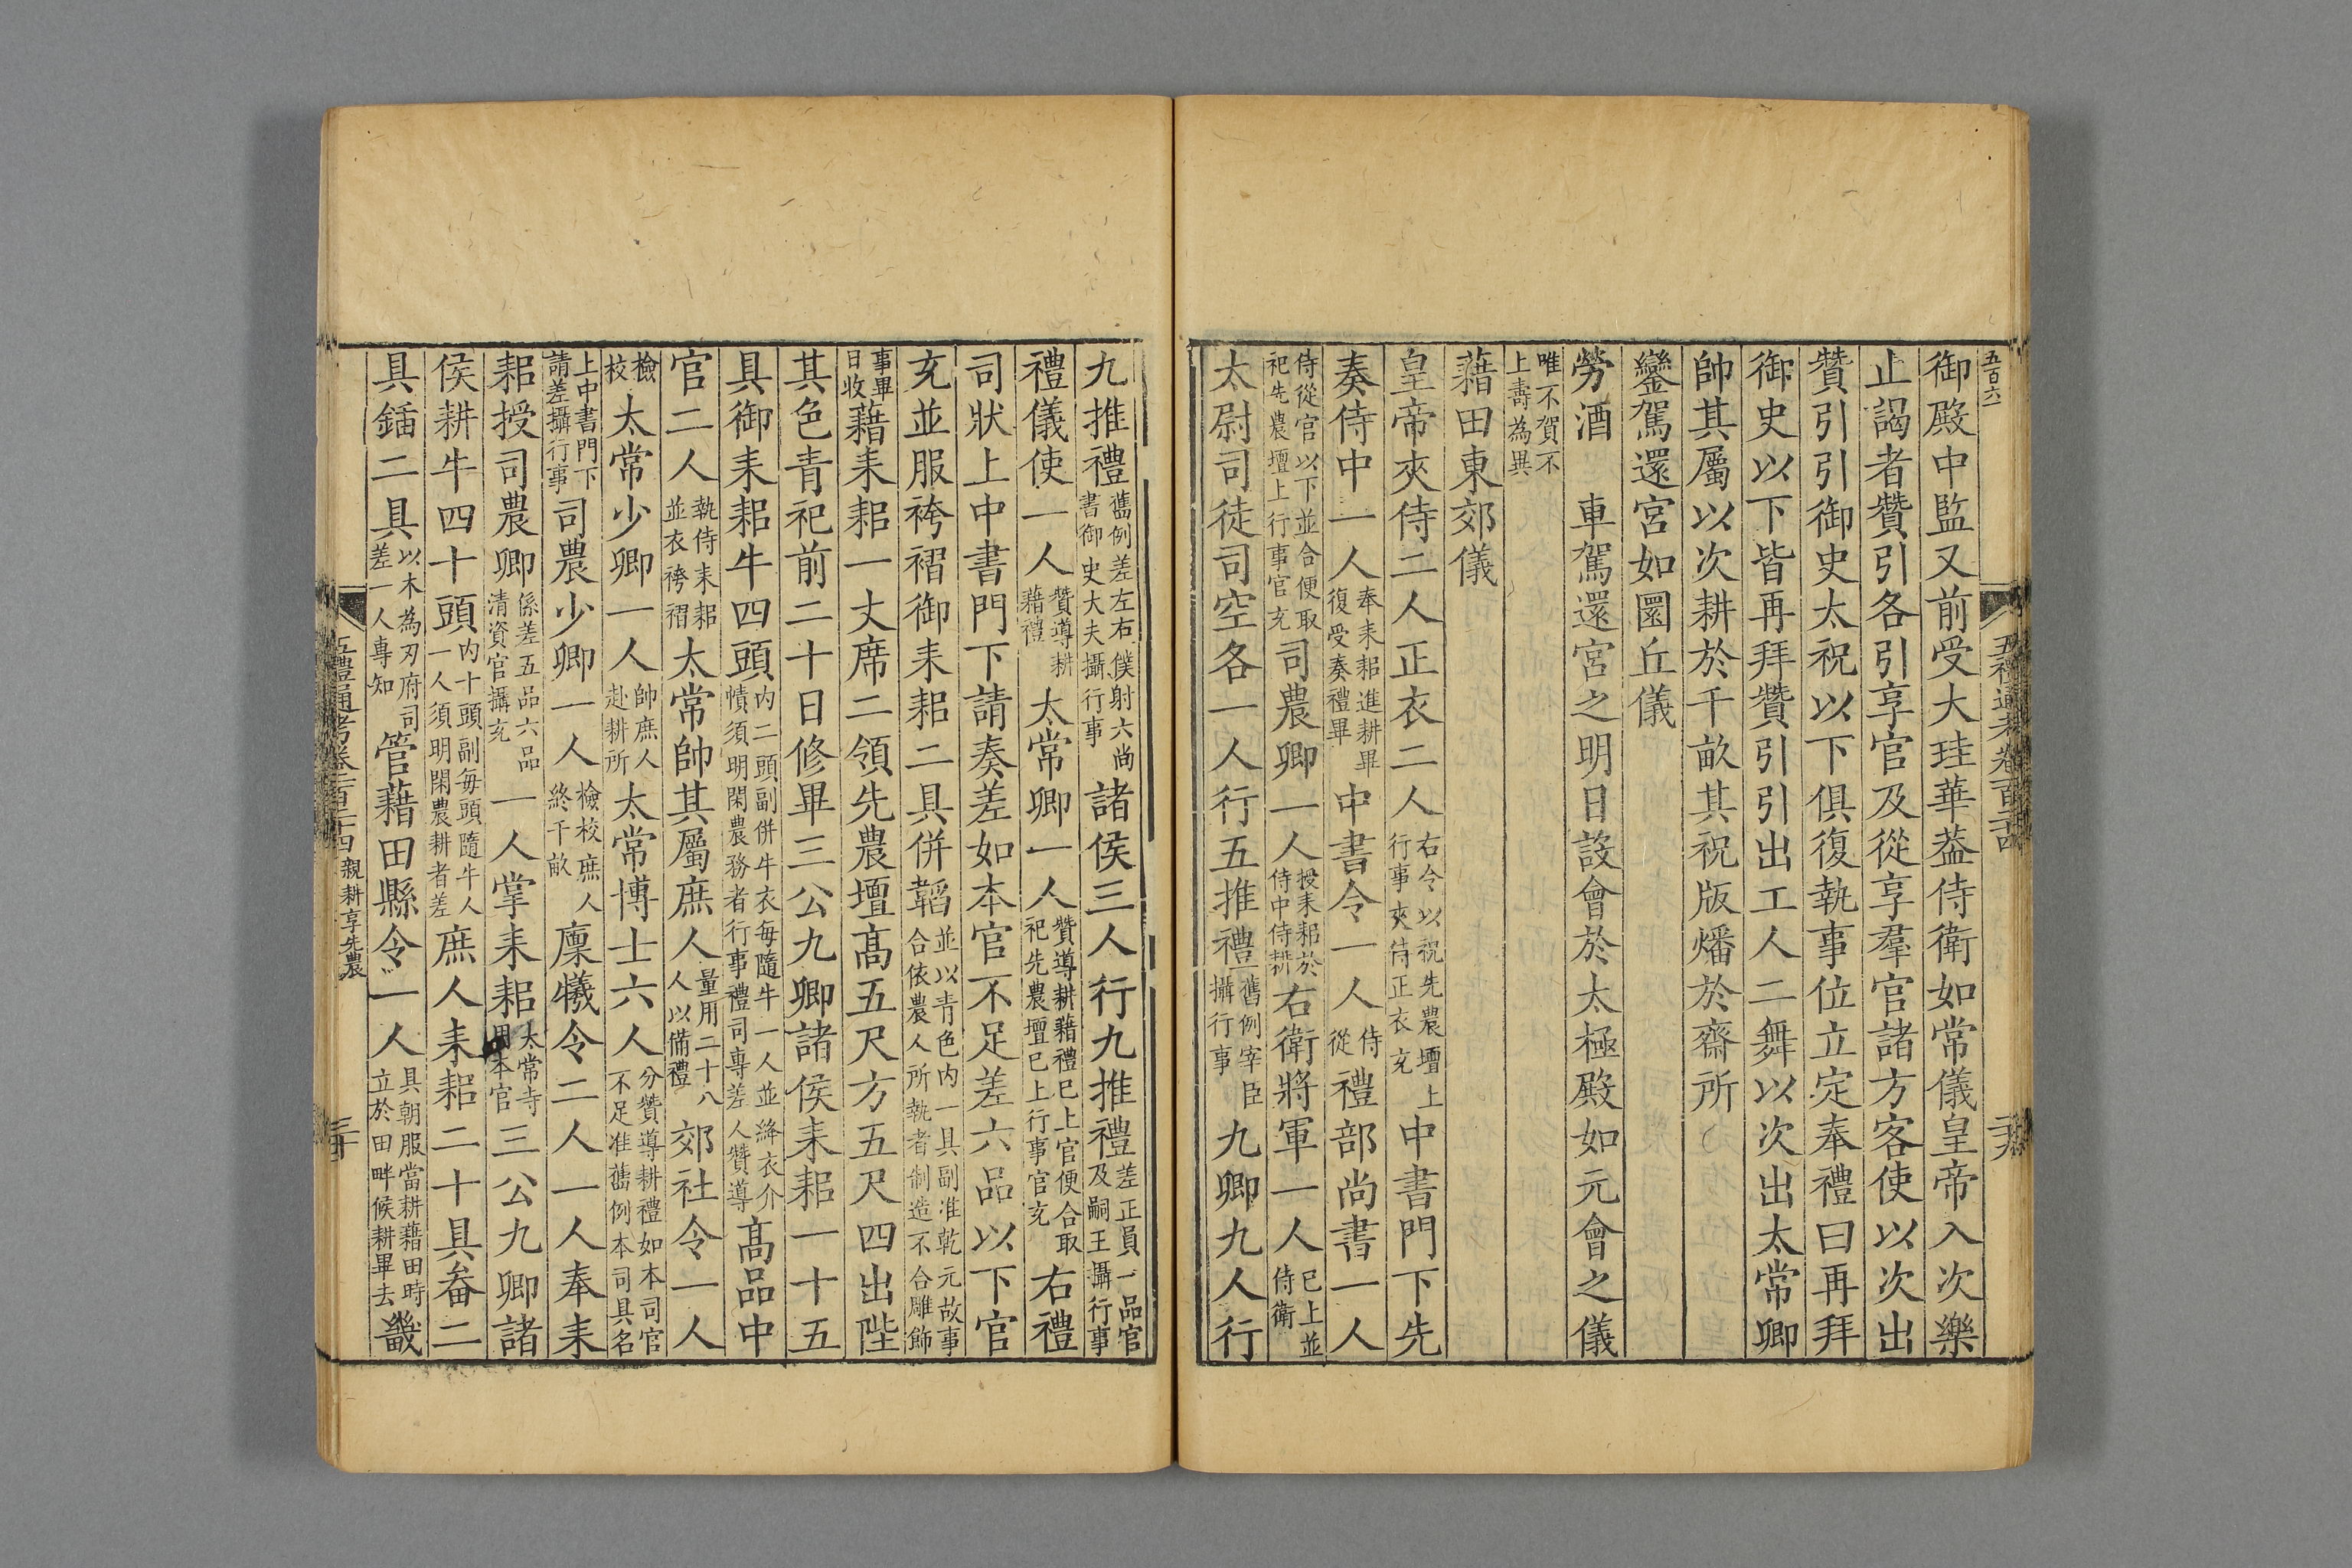 五百六
御殿中監又前受大珪華葢侍衛如常儀皇帝入次樂
止謁者贊引各引享官及從享羣官諸方客使以次出
贊引引御史太祝以下俱復執事位立定奉禮曰再拜
御史以下皆再拜贊引引出工人二舞以次出太常卿
帥其屬以次耕於千畝其祝版燔於齋所
鑾駕還宮如圜丘儀
勞酒 車駕還宮之明日設會於太極殿如元會之儀
唯不賀不
上壽為異
藉田東郊儀
皇帝夾侍二人正衣二人右令以祝先農壇上行事夾侍正衣充中書門下先
奏侍中一人奉耒耜進耕畢復受奏禮畢中書令一人侍從禮部尚書一人
侍從官以下並合便取祀先農壇上行事官充司農卿一人授耒耜於侍中侍耕右衛將軍一人已上並侍衛
太尉司徒司空各一人行五推禮舊例宰臣攝行事九卿九人行
九推禮舊例差左右僕射六尚書御史大夫攝行事諸侯三人行九推禮差正員一品官及嗣王攝行事
禮儀使一人贊導耕藉禮太常卿一人贊導耕藉禮已上官便合取祀先農壇已上行事官充右禮
司狀上中書門下請奏差如本官不足差六品以下官
充並服袴褶御耒耜二具併韜並以青色内一具副准乾元故事合依農人所執者制造不合雕飾
事畢日收藉耒耜一丈席二領先農壇高五尺方五尺四出陛
其色青祀前二十日修畢三公九卿諸侯耒耜一十五
具御耒耜牛四頭内二頭副併牛衣每隨牛一人並絳衣介幘須明閑農務者行事禮司專差人贊導高品中
官二人執侍耒耜並衣袴褶太常帥其屬庶人量用二十八人以備禮郊社令一人
檢校太常少卿一人帥庶人赴耕所太常博士六人分贊導耕禮如本司官不足准舊例本司具名
上中書門下請差攝行事司農少卿一人檢校庶人終千畝廩犧令二人一人奉耒
耜授司農卿係差五品六品清資官攝充一人掌耒耜太常寺本官三公九卿諸
侯耕牛四十頭内十頭副每頭隨牛人一人須明閑農耕者差庶人耒耜二十具畚二
具鍤二具以木為刃府司差一人專知管藉田縣令一人具朝服當耕藉田時立於田畔候耕畢去畿
親耕享先農
三十